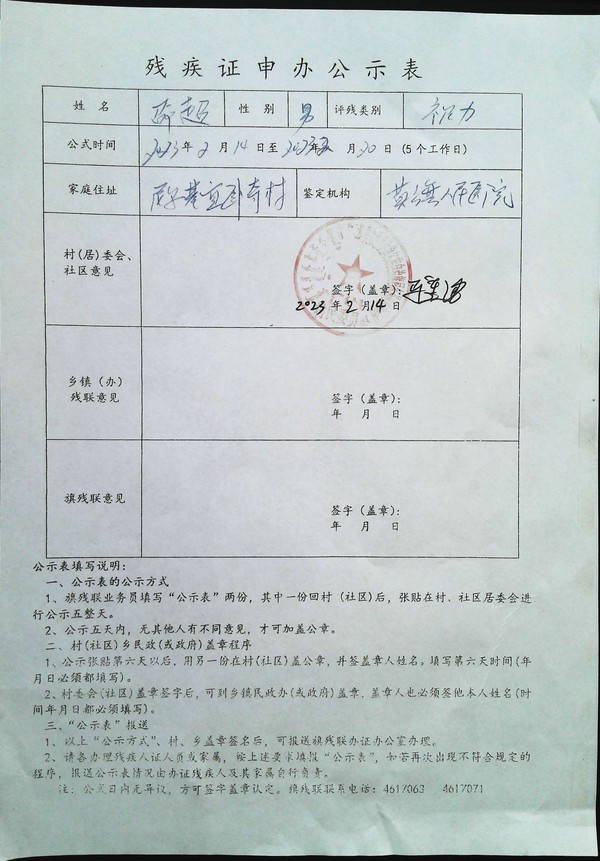 残疾证申办公示表
姓 名 超 性 别 男 评残类别 视力
公式时间 2023年2月14日至2023年2月20日(5个工作日)
家庭住址 村 鉴定机构 人民医院
村(居)委会、
社区意见
签字(盖章):
2023年2月14日
乡镇(办)
残联意见
签字(盖章):
年 月 日
旗残联意见
签字(盖章):
年 月 日
公示表填写说明:
一、公示表的公示方式
1、旗残联业务员填写“公示表”两份,其中一份回村(社区)后,张贴在村、社区居委会进
行公示五整天。
2、公示五天内,无其他人有不同意见,才可加盖公章。
二、村(社区)乡民政(或政府)盖章程序
1、公示张贴第六天以后,用另一份在村(社区)盖公章,并签盖章人姓名。填写第六天时间(年
月日必须都填写)。
2、村委会(社区)盖章签字后,可到乡镇民政办(或政府)盖章,盖章人也必须签他本人姓名(时
间年月日都必须填写)。
三、“公示表”报送
1、以上“公示方式”、村、乡盖章签名后,可报送旗残联办证办公室办理。
2、请各办理残疾人证人员或家属,按上述要求填报“公示表”,如若再次出现不符合规定的
程序,报送公示表情况由办证残疾人及其家属自行负责。
注:公式日内无异议,方可签字盖章认定。旗残联联系电话:4617063 4617071